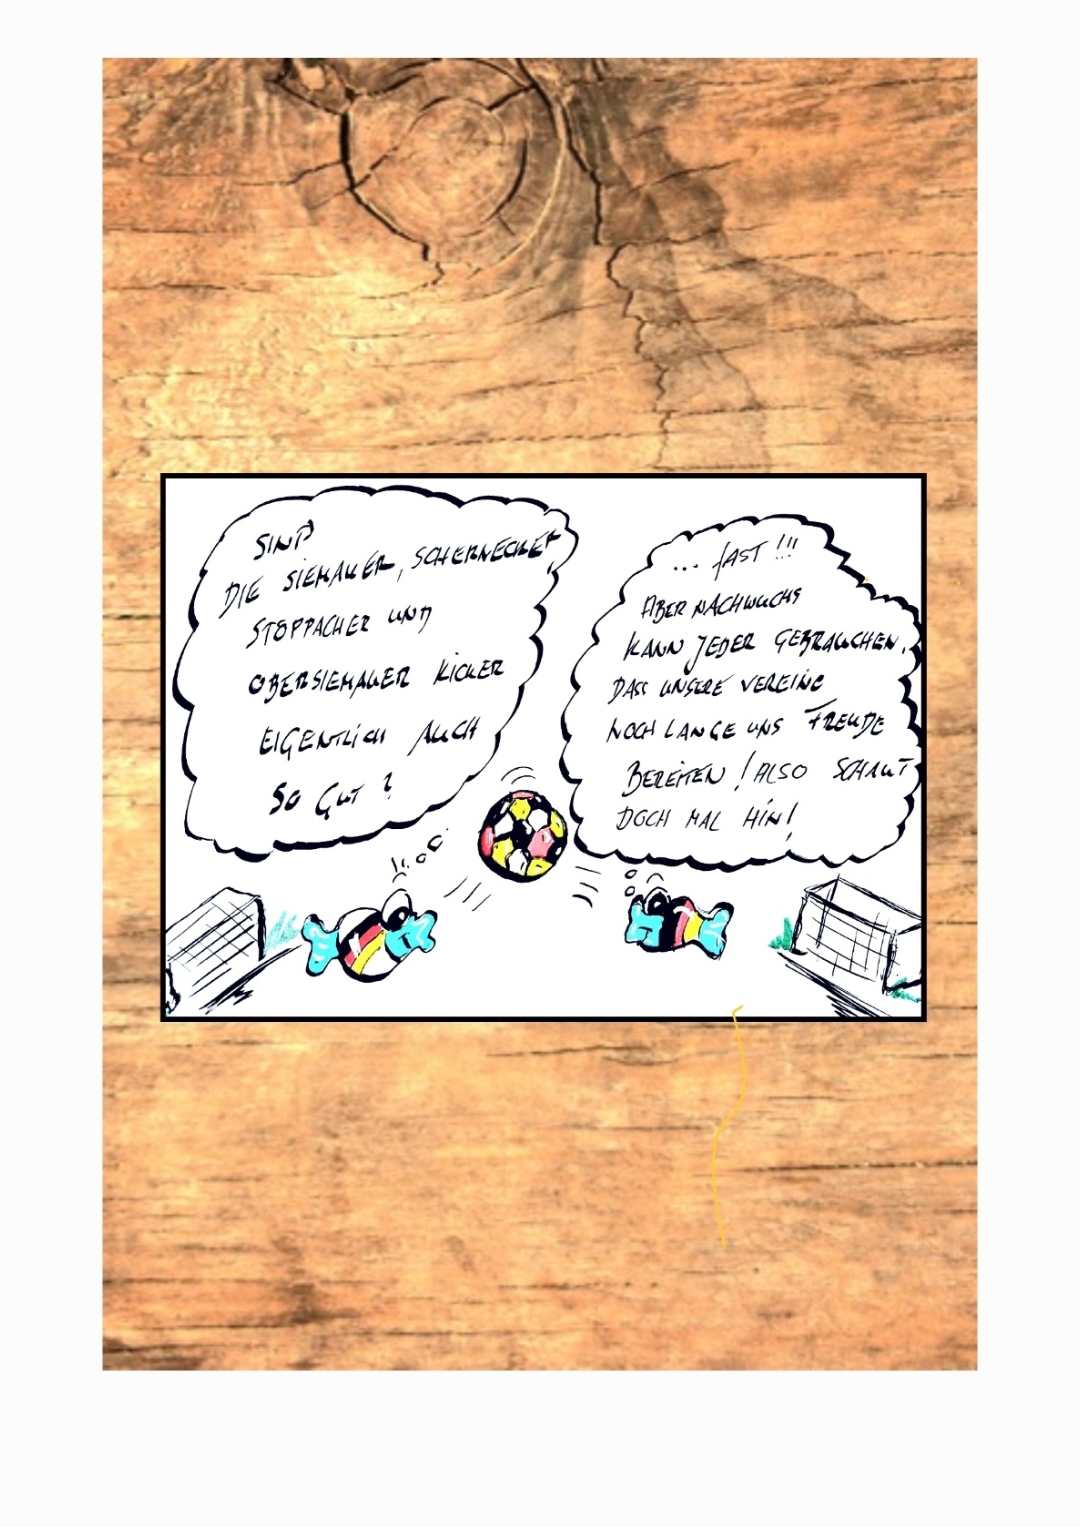 SIND
DIE SIEMAUER, SCHERNECKER,
STÖPPACHER UND
OBERSIEMAUER KICKER
EIGENTLICH AUCH
SO GUT?
... FAST!!!
ABER NACHWUCHS
KANN JEDER GEBRAUCHEN,
DASS UNSERE VEREINE
NOCH LANGE UNS FREUDE
BEREITEN! ALSO SCHAUT
DOCH MAL HIN!